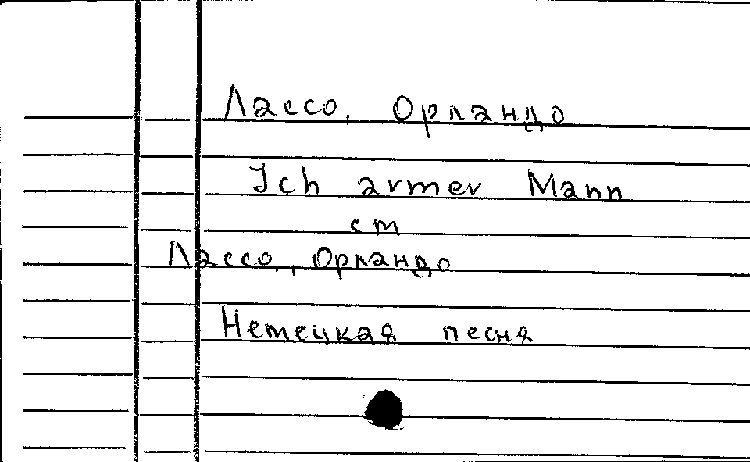 Лассо, Орландо
Ich armer Mann
см
Лассо, Орландо
Немецкая песня